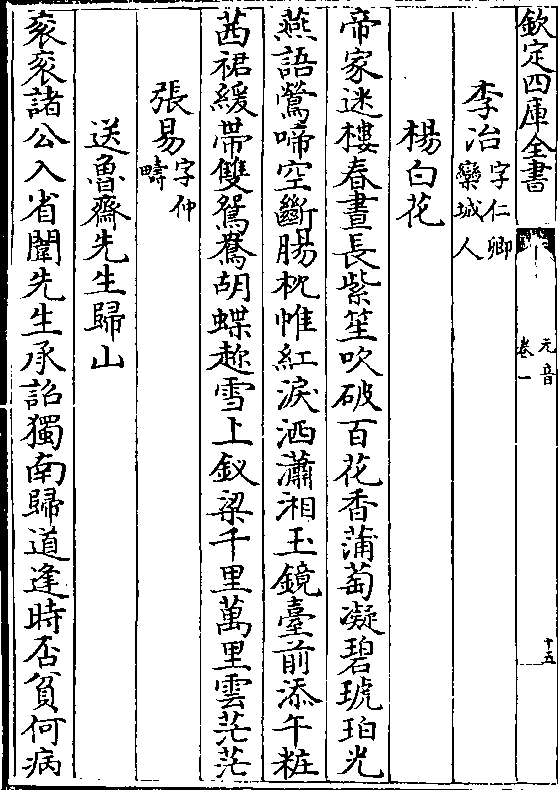 欽定四庫全書
元音
卷一
十五
李冶字仁卿
欒城人
楊白花
帝家迷樓春晝長紫笙吹破百花香蒲萄凝碧琥珀光
燕語鶯啼空斷腸枕帷紅淚洒瀟湘玉鏡臺前添午粧
茜裙緩帶雙鴛鴦胡蝶趂雪上釵梁千里萬里雲茫茫
張易字仲
疇
送魯齋先生歸山
衮衮諸公入省闈先生承詔獨南歸道逢時否貧何病